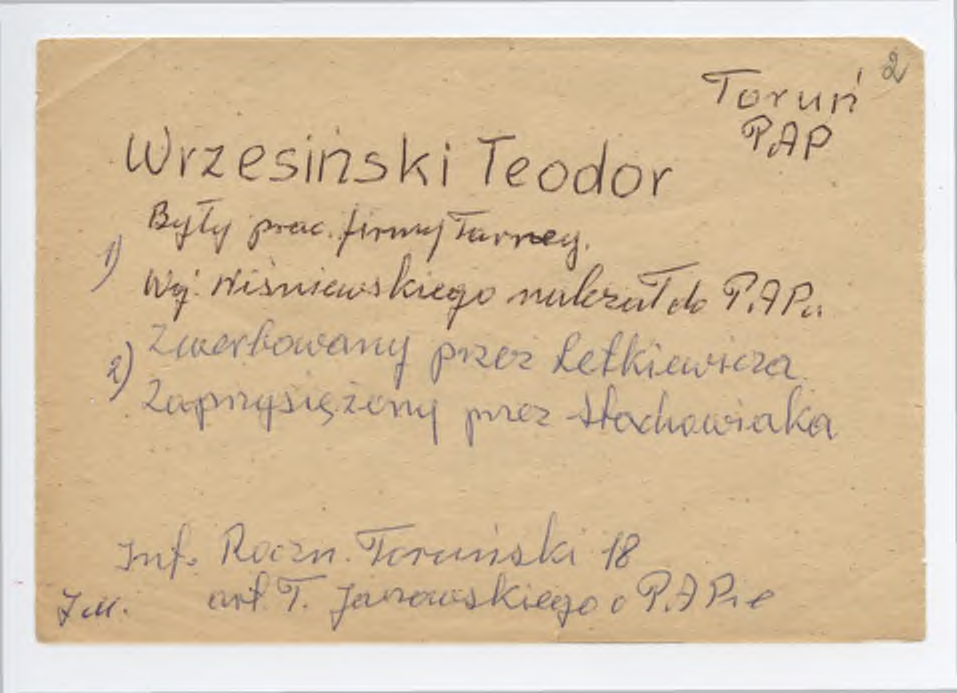 2
Toruń
PAP
Wrzesiński Teodor
Były prac. firmy Tarrey.
1)
Wg. Wiśniewskiego należał do P.A.Pu.
2) Zwerbowany przez Letkiewicza
Zaprzysiężony przez Stachowiaka
Inf. Roczn. Toruński 18
J.M. art. T. Jaszowskiego o P.A.Pie